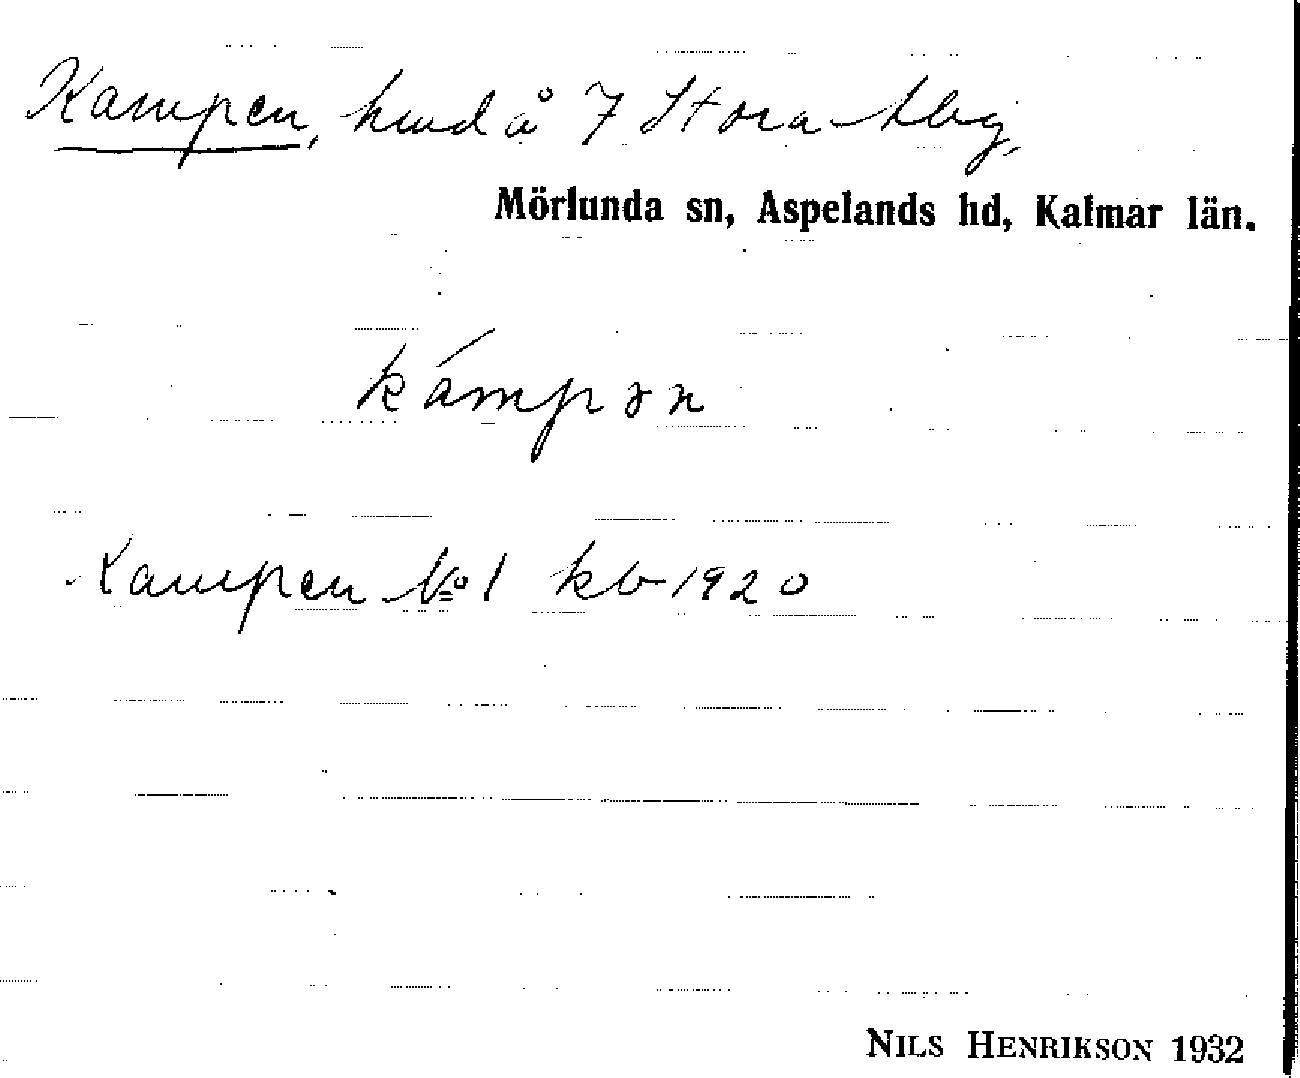 Kampen, hmd å 7 Stora Aby,
Mörlunda sn, Aspelands hd, Kalmar län.
kámpən
Kampen № 1 kb 1920
NILS HENRIKSON 1932